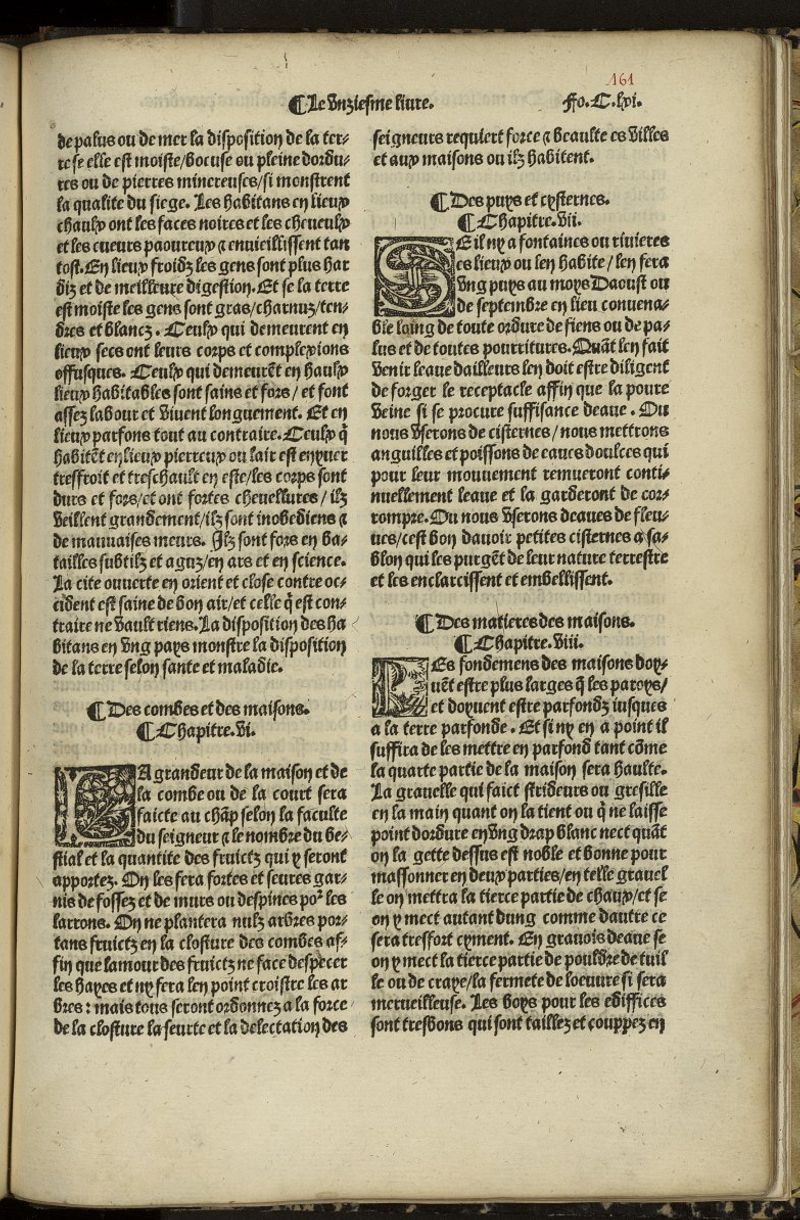 161
¶ Le Vnziesme liure.
Fo. C. lxi.
de palus ou de mer la disposition de la ter-
re se elle est moiste/bocuse ou pleine dordu-
res ou de pierres minereuses/si monstrent
la qualite du siege. Les habitans en lieux
chaulx ont les faces noires et les cheueulx
et les cueurs paoureux ⁊ enuieillissent tan
tost. En lieux froidz les gens sont plus har
diz et de meilleure digestion. Et se la terre
est moiste les gens sont gras/charnuz/ten-
dres et blancz. Ceulx qui demeurent en
lieux secs ont leurs corps et complexions
offusques. Ceulx qui demeurēt en haulx
lieux habitables sont sains et fors/ et font
assez labour et viuent longuement. Et en
lieux parfons tout au contraire. Ceulx q̄
habitēt en lieux pierreux ou lair est en yuer
tresfroit et treschault en este/les corps sont
durs et fors/et ont fortes cheuellures/ ilz
veillent grandement/ilz sont inobediens ⁊
de mauuaises meurs. Ilz sont fors en ba-
tailles subtilz et aguz/en ars et en science.
La cite ouuerte en orient et close contre oc-
cident est saine de bon air/et celle q̄ est con-
traire ne vault riens. La disposition des ha
bitans en vng pays monstre la disposition
de la terre selon sante et maladie.
¶ Des combes et des maisons.
¶ Chapitre. vi.
LA grandeur de la maison et de
la combe ou de la court sera
faicte au chāp selon la faculte
du seigneur ⁊ le nombre du be-
stial et la quantite des fruictz qui y seront
apportez. On les fera fortes et seures gar-
nis de fossez et de murs ou despines po² les
larrons. On ne plantera nulz arbres por-
tans fruictz en la closture des combes af-
fin que lamour des fruictz ne face despecer
les hayes et ny fera len point croistre les ar
bres: mais tous seront ordonnez a la force
de la closture la seurte et la delectation des
seigneurs requiert force ⁊ beaulte es villes
et aux maisons ou ilz habitent.
¶ Des puys et cysternes.
¶ Chapitre. vii.
SE il ny a fontaines ou riuieres
es lieux ou len habite/ len fera
vng puys au moys Daoust ou
de septembre en lieu conuena-
ble loing de toute ordure de fiens ou de pa-
lus et de toutes pourritures. Quāt len fait
venir leaue dailleurs len doit estre diligent
de forger le receptacle affin que la poure
veine si se procure suffisance deaue. Ou
nous vserons de cisternes/ nous mettrons
anguilles et poissons de eaues doulces qui
pour leur mouuement remueront conti-
nuellement leaue et la garderont de cor-
rompre. Ou nous vserons deaues de fleu-
ues/cest bon dauoir petites cisternes a sa-
blon qui les purgēt de leur nature terrestre
et les enclarcissent et embellissent.
¶ Des matieres des maisons.
¶ Chapitre. viii.
LEs fondemens des maisons doy-
uēt estre plus larges q̄ les paroys/
et doyuent estre parfondz iusques
a la terre parfonde. Et si ny en a point il
suffira de les mettre en parfond tant cōme
la quarte partie de la maison sera haulte.
La grauelle qui faict strideurs ou gresille
en la main quant on la tient ou q̄ ne laisse
point dordure en vng drap blanc nect quāt
on la gette dessus est noble et bonne pour
massonner en deux parties/en telle grauel
le on mettra la tierce partie de chaux/et se
on y mect autant dung comme dautre ce
sera tresfort cyment. En grauois deaue se
on y mect la tierce partie de pouldre de tuil
le ou de craye/la fermete de loeuure si sera
merueilleuse. Les boys pour les ediffices
sont tresbons qui sont taillez et couppez en